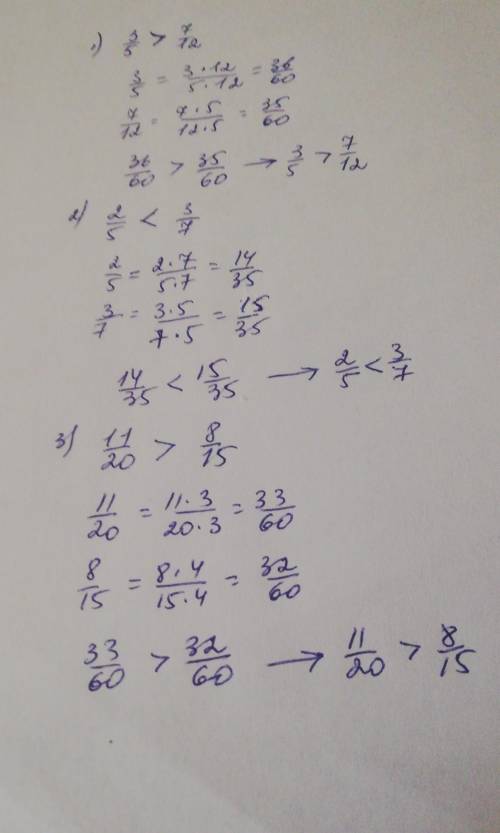 1) 3/5 > 7/12
3/5 = 3·12/5·12 = 36/60
7/12 = 7·5/12·5 = 35/60
36/60 > 35/60 → 3/5 > 7/12
2) 2/5 < 3/7
2/5 = 2·7/5·7 = 14/35
3/7 = 3·5/7·5 = 15/35
14/35 < 15/35 → 2/5 < 3/7
3) 11/20 > 8/15
11/20 = 11·3/20·3 = 33/60
8/15 = 8·4/15·4 = 32/60
33/60 > 32/60 → 11/20 > 8/15